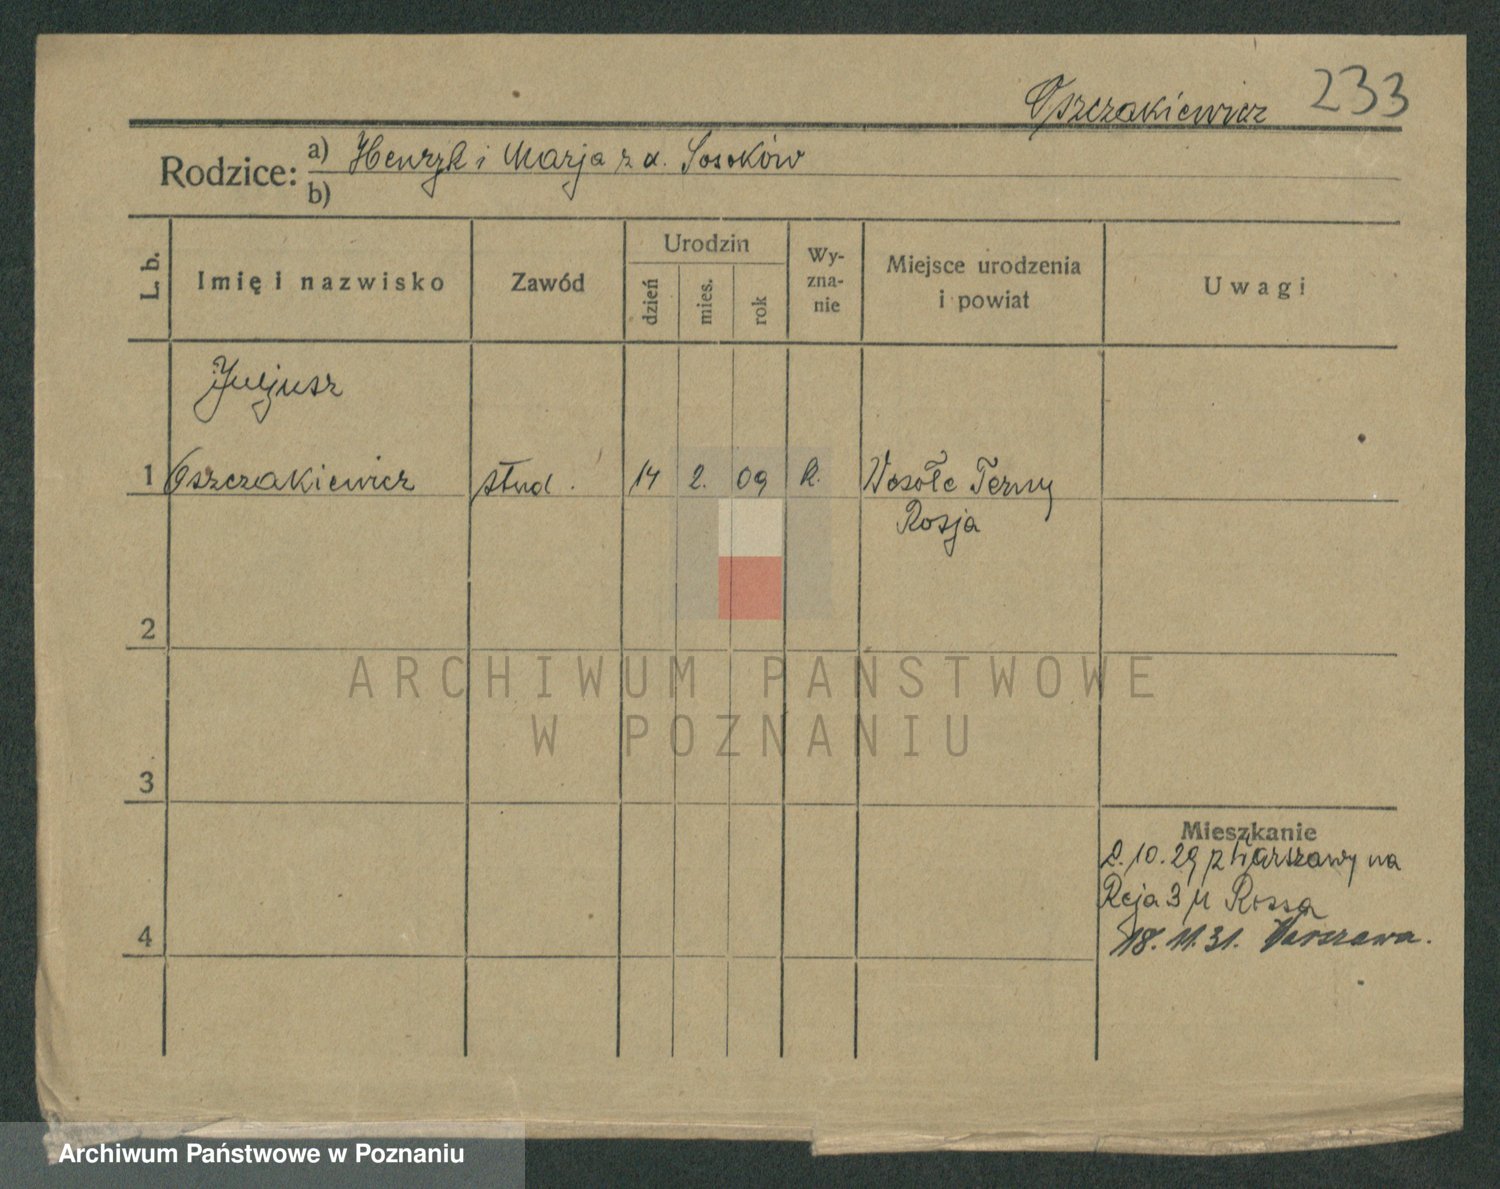 Oszczakiewicz 233
Rodzice: a) Henryk i Marja z d. Sosoków
b)
L. b.
Imię i nazwisko
Zawód
Urodzin
dzień
mies.
rok
Wy-
zna-
nie
Miejsce urodzenia
i powiat
Uwagi
Juljusz
1 Oszczakiewicz stud. 14 2. 09 R. Wesołe Terny
Rosja
2
ARCHIWUM PAŃSTWOWE
W POZNANIU
3
Mieszkanie
2.10.29 z Warszawy na
Reja 3 u Rossa
4
18.11.31. Warszawa.
Archiwum Państwowe w Poznaniu